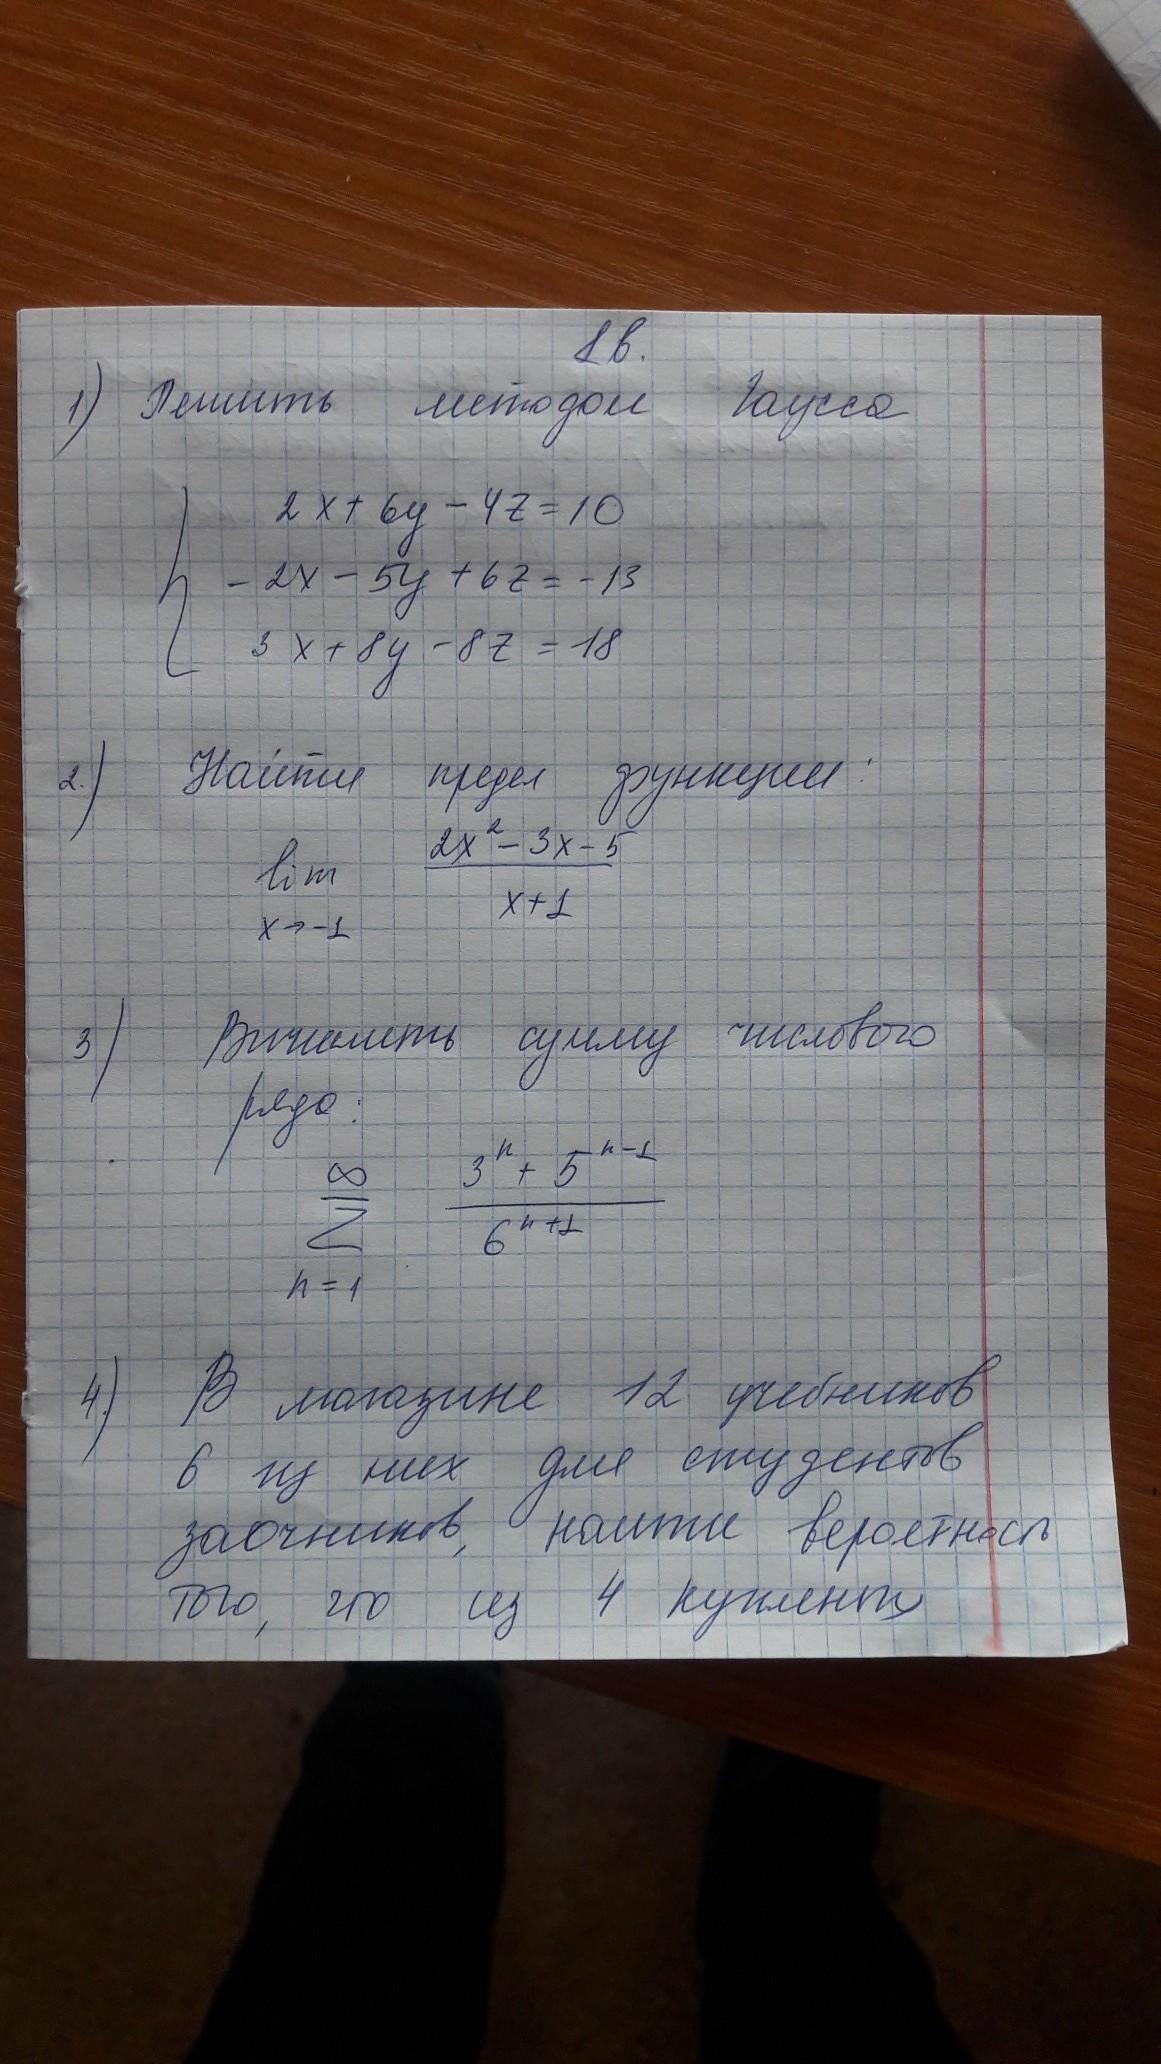 1 в.
1) Решить методом Гаусса
2x + 6y - 4z = 10
- 2x - 5y + 6z = - 13
3x + 8y - 8z = 18
2.) Найти предел функции:
lim 2x² - 3x - 5
x → -1 x + 1
3) Вычислить сумму числового
ряда:
∞ 3ⁿ + 5ⁿ⁻¹
∑ 6ⁿ⁺¹
n = 1
4.) В магазине 12 учебников
6 из них для студентов
заочников, найти вероятность
того, что из 4 купленных